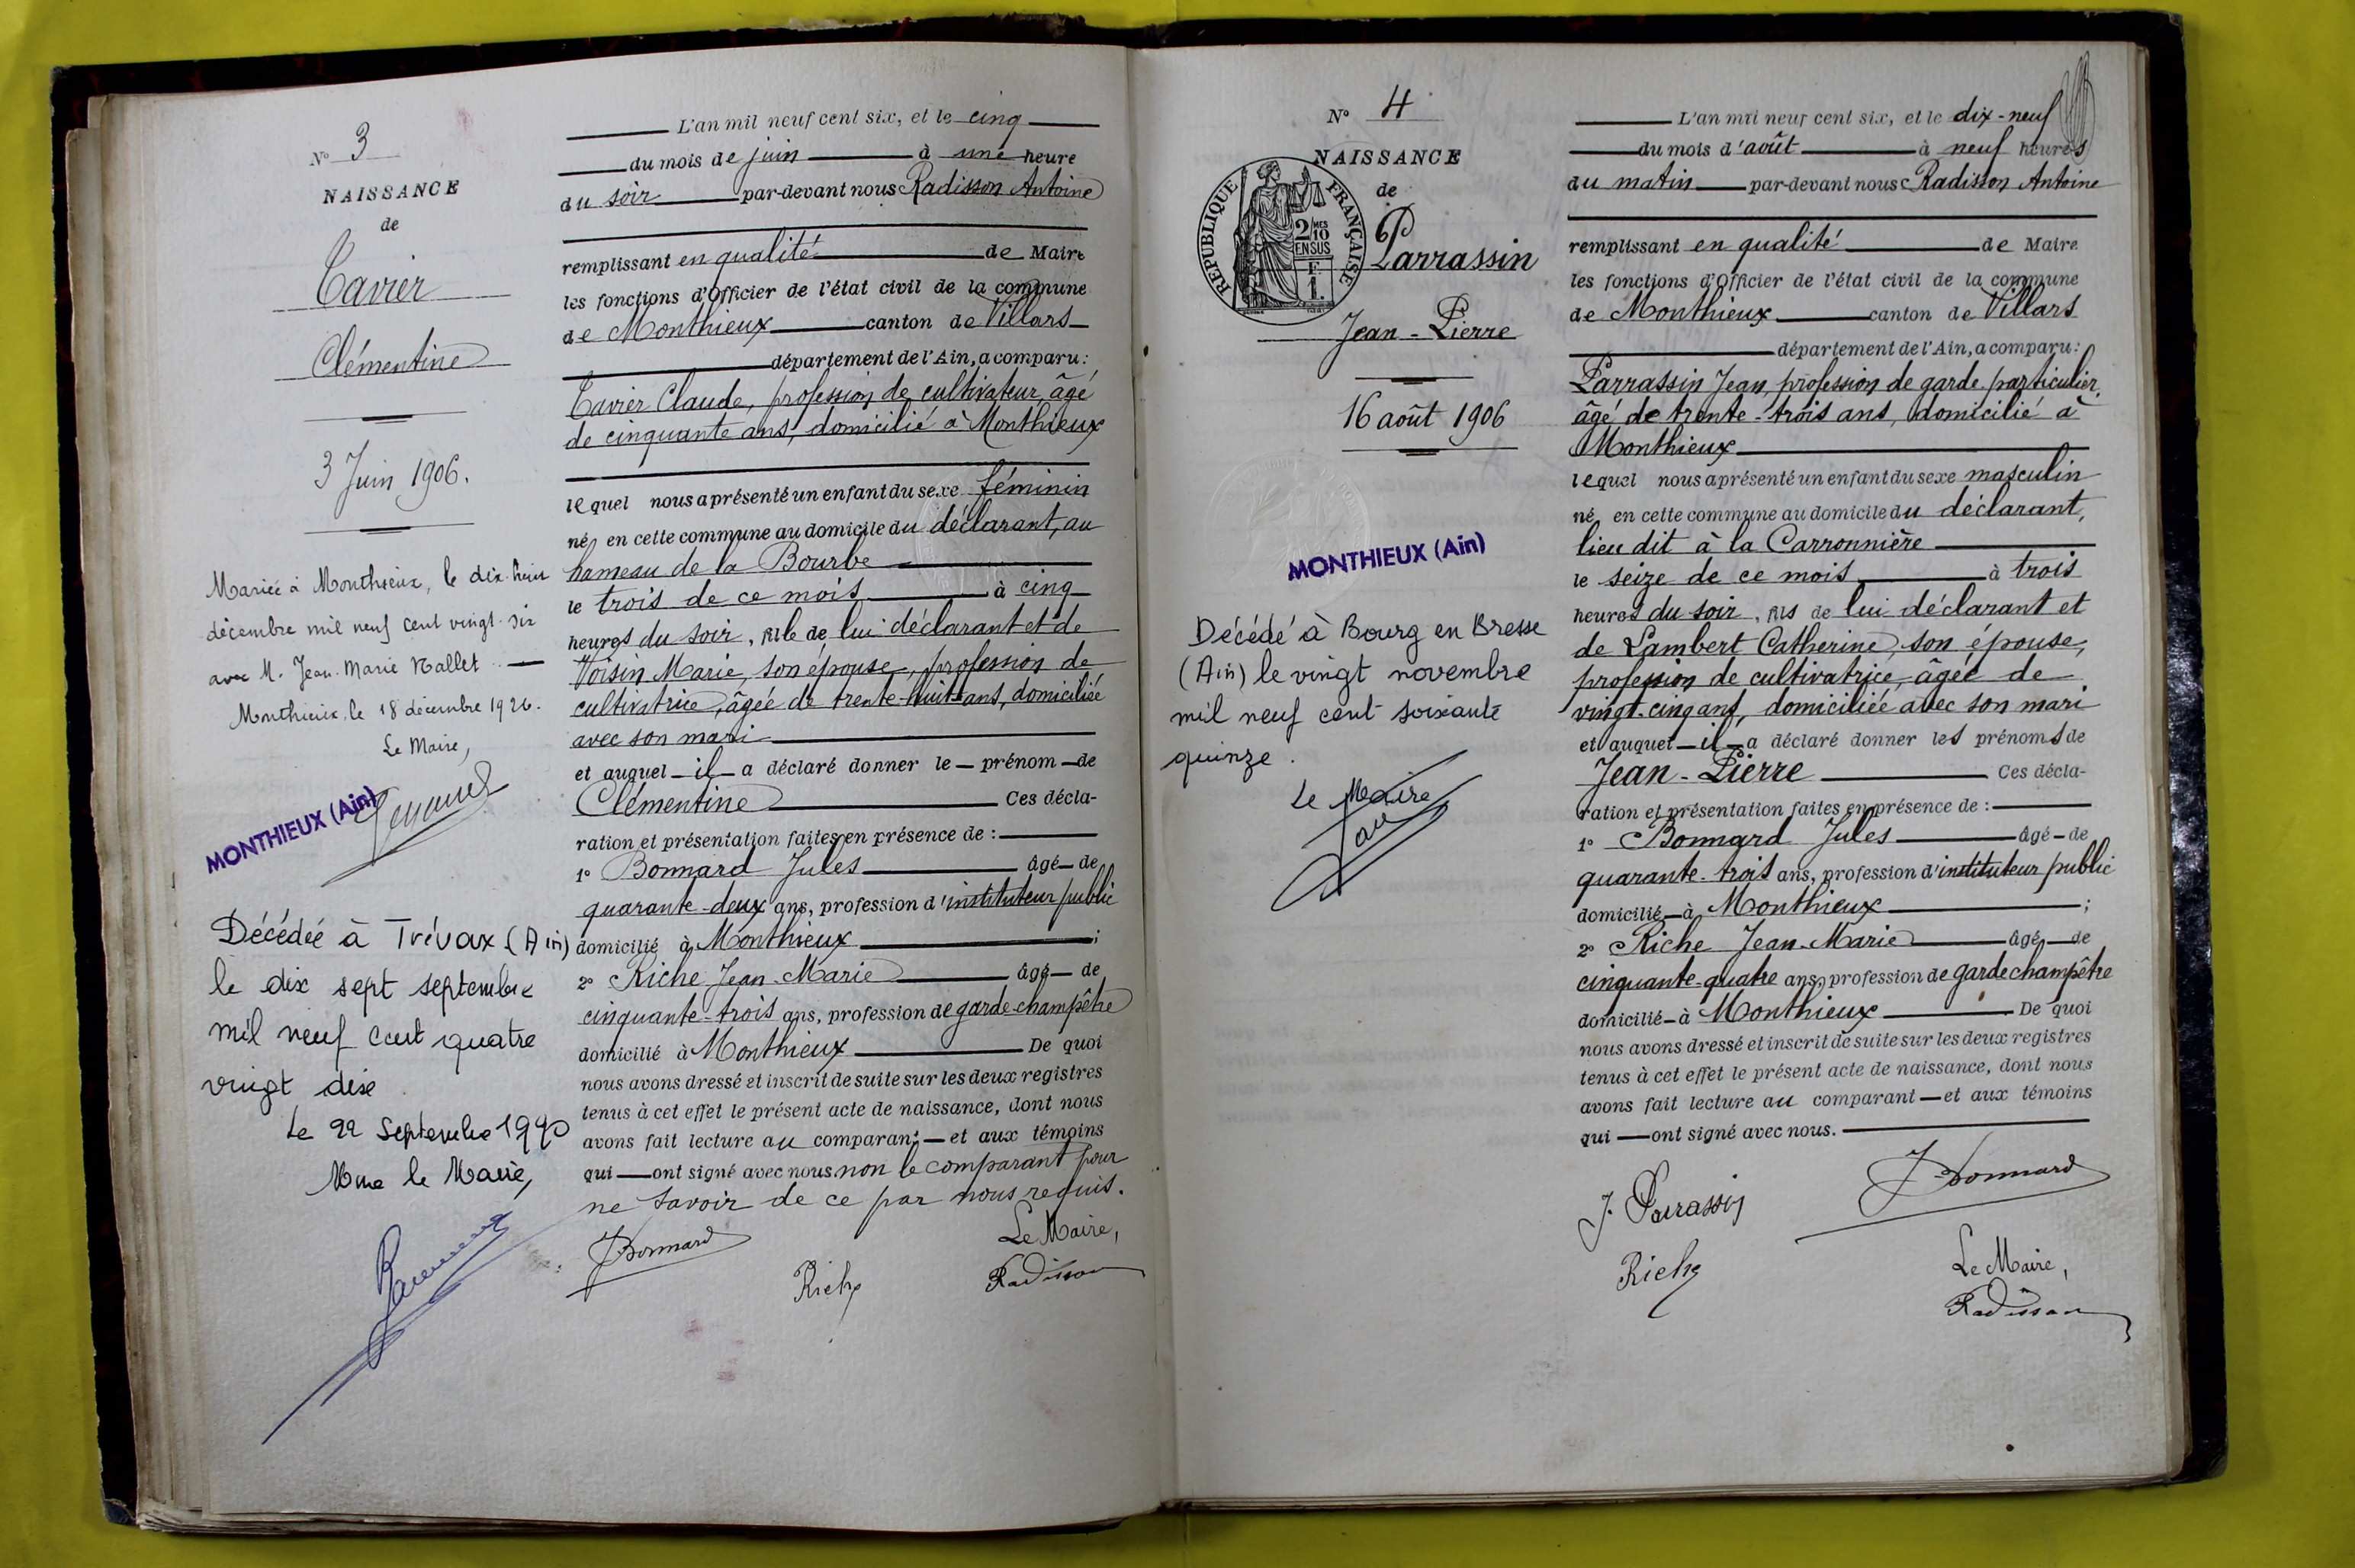 N° 3
NAISSANCE
de
Tavier
Clémentine
3 Juin 1906.
Mariée à Monthieux, le dix huit
décembre mil neuf cent vingt-six
avec M. Jean-Marie Nallet
Monthieux, le 18 décembre 1926.
Le Maire,
MONTHIEUX (Ain)
Décédée à Trévoux (Ain)
le dix sept septembre
mil neuf cent quatre
vingt dix
Le 22 Septembre 1990
Mme le Maire,
L'an mil neuf cent six, et le cinq
du mois de juin à une heure
du soir par-devant nous Radisson Antoine
remplissant en qualité de Maire
les fonctions d'Officier de l'état civil de la commune
de Monthieux canton de Villars
département de l'Ain, a comparu :
Tavier Claude, profession de cultivateur, âgé
de cinquante ans, domicilié à Monthieux
lequel nous a présenté un enfant du sexe féminin
né, en cette commune au domicile du déclarant, au
hameau de la Bourbe
le trois de ce mois à cinq
heures du soir, fille de lui déclarant et de
Voisin Marie, son épouse, profession de
cultivatrice, âgée de trente-huit ans, domiciliée
avec son mari
et auquel — il — a déclaré donner le — prénom — de
Clémentine Ces décla-
ration et présentation faites en présence de :
1° Bonnard Jules âgé — de
quarante-deux ans, profession d'instituteur public
domicilié à Monthieux ;
2° Riche Jean-Marie âgé — de
cinquante-trois ans, profession de garde-champêtre
domicilié à Monthieux De quoi
nous avons dressé et inscrit de suite sur les deux registres
tenus à cet effet le présent acte de naissance, dont nous
avons fait lecture au comparant — et aux témoins
qui — ont signé avec nous non le comparant pour
ne savoir de ce par nous requis.
J Bonnard
Riche
Le Maire,
Radisson
N° 4
NAISSANCE
de
REPUBLIQUE FRANÇAISE
2/10 MES
EN SUS
F.
1.
Parrassin
Jean-Pierre
16 août 1906
MONTHIEUX (Ain)
Décédé à Bourg en Bresse
(Ain) le vingt novembre
mil neuf cent soixante
quinze.
Le Maire
L'an mil neuf cent six, et le dix-neuf
du mois d'août à neuf heures
du matin par-devant nous Radisson Antoine
remplissant en qualité de Maire
les fonctions d'Officier de l'état civil de la commune
de Monthieux canton de Villars
département de l'Ain, a comparu :
Parrassin Jean, profession de garde particulier,
âgé de trente-trois ans, domicilié à
Monthieux
lequel nous a présenté un enfant du sexe masculin
né, en cette commune au domicile du déclarant,
lieu dit à la Carronnière
le seize de ce mois à trois
heures du soir, fils de lui déclarant et
de Lambert Catherine, son épouse,
profession de cultivatrice, âgée de
vingt-cinq ans, domiciliée avec son mari
et auquel — il — a déclaré donner les prénoms de
Jean-Pierre Ces décla-
ration et présentation faites en présence de :
1° Bonnard Jules âgé — de
quarante-trois ans, profession d'instituteur public
domicilié — à Monthieux ;
2° Riche Jean-Marie âgé — de
cinquante-quatre ans, profession de garde champêtre
domicilié — à Monthieux De quoi
nous avons dressé et inscrit de suite sur les deux registres
tenus à cet effet le présent acte de naissance, dont nous
avons fait lecture au comparant — et aux témoins
qui — ont signé avec nous.
J. Parrassin
J Bonnard
Riche
Le Maire,
Radisson